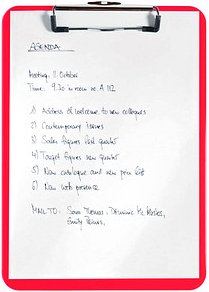 AGENDA
Meeting, 11. October
Time: 9.30 in room no. A 112
1) Address of welcome to new colleagues
2) Contemporary issues
3) Sales figures last quarter
4) Target figures new quarter
5) New catalogue and new price list
6) New web presence
MAIL TO: Sam Thomas, Dominic
Emily